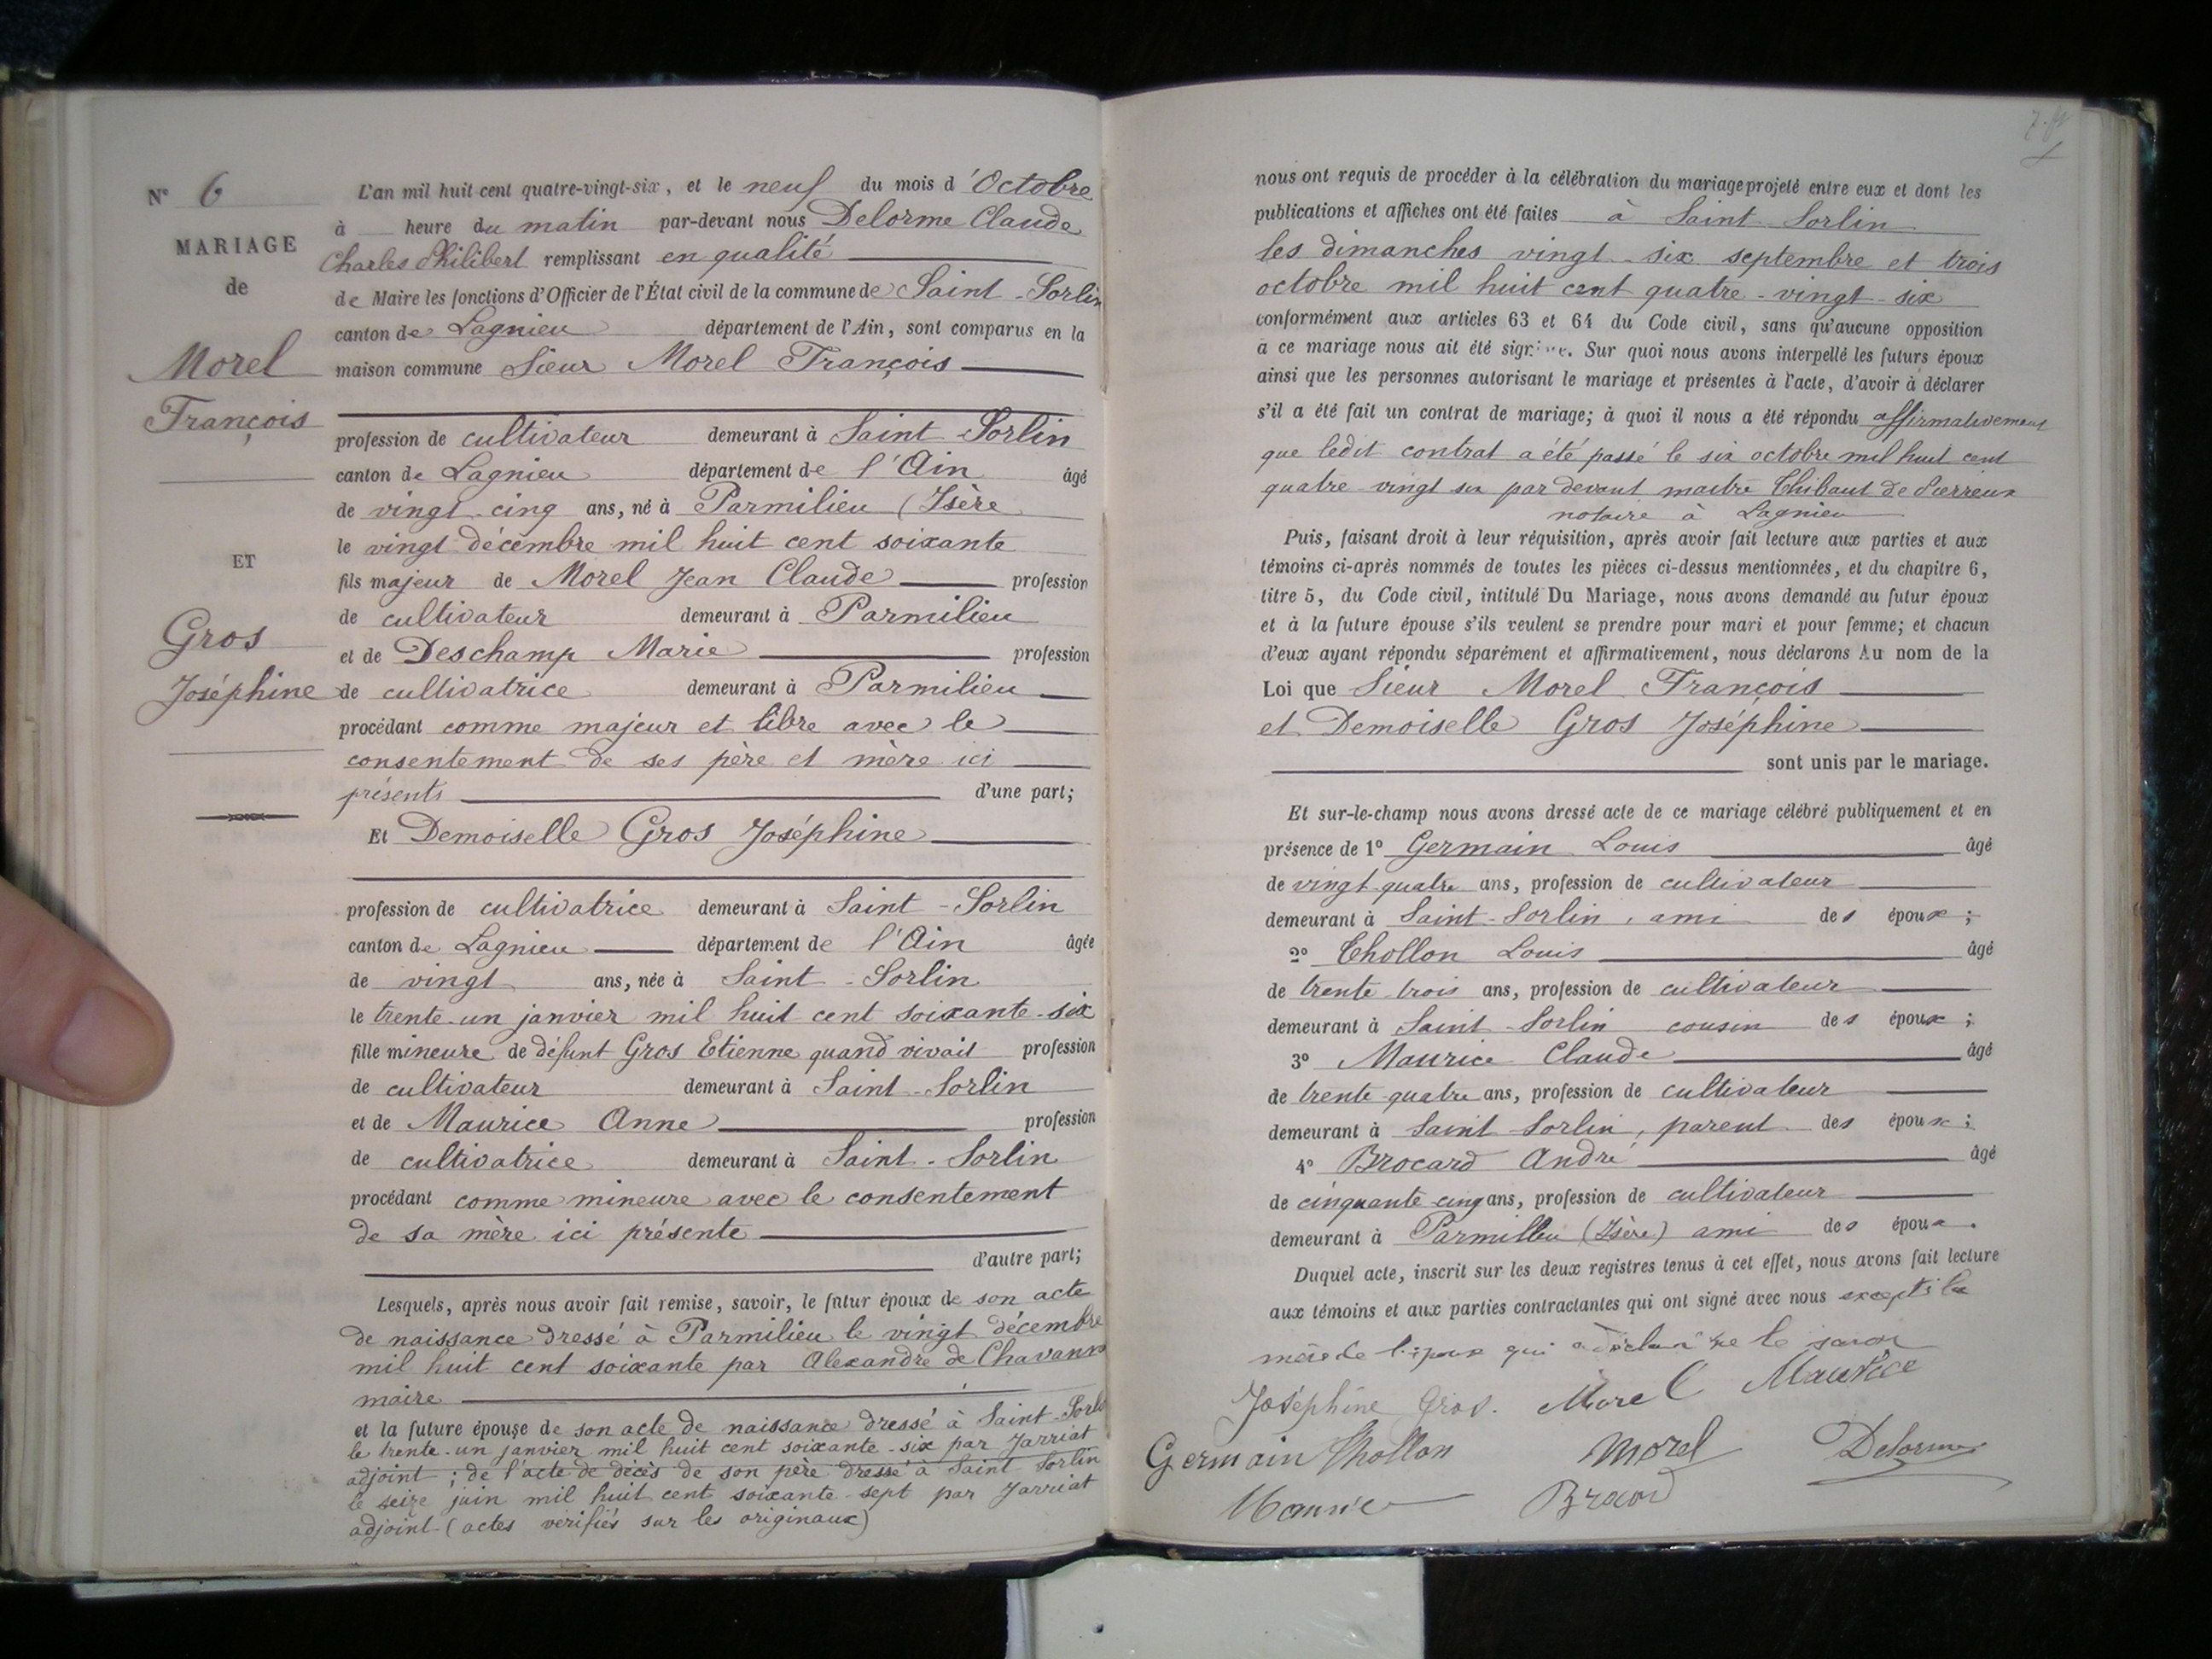 N° 6
MARIAGE
de
Morel
François
ET
Gros
Joséphine
L'an mil huit cent quatre-vingt-six, et le neuf du mois d'Octobre
à heure du matin par-devant nous Delorme Claude
Charles Philibert remplissant en qualité
de Maire les fonctions d'Officier de l'État civil de la commune de Saint-Sorlin
canton de Lagnieu département de l'Ain, sont comparus en la
maison commune Sieur Morel François
profession de cultivateur demeurant à Saint-Sorlin
canton de Lagnieu département de l'Ain âgé
de vingt-cinq ans, né à Parmilieu (Isère
le vingt décembre mil huit cent soixante
fils majeur de Morel Jean Claude profession
de cultivateur demeurant à Parmilieu
et de Deschamp Marie profession
de cultivatrice demeurant à Parmilieu
procédant comme majeur et libre avec le
consentement de ses père et mère ici
présents d'une part;
Et Demoiselle Gros Joséphine
profession de cultivatrice demeurant à Saint-Sorlin
canton de Lagnieu département de l'Ain âgée
de vingt ans, née à Saint-Sorlin
le trente-un janvier mil huit cent soixante-six
fille mineure de défunt Gros Etienne quand vivait profession
de cultivateur demeurant à Saint-Sorlin
et de Maurice Anne profession
de cultivatrice demeurant à Saint-Sorlin
procédant comme mineure avec le consentement
de sa mère ici présente
d'autre part;
Lesquels, après nous avoir fait remise, savoir, le futur époux de son acte
de naissance dressé à Parmilieu le vingt décembre
mil huit cent soixante par Alexandre de Chavanne
maire
et la future épouse de son acte de naissance dressé à Saint-Sorli
le trente-un janvier mil huit cent soixante-six par Jarriat
adjoint; de l'acte de décès de son père dressé à Saint Sorlin
le seize juin mil huit cent soixante-sept par Jarriat
adjoint (actes verifiés sur les originaux)
nous ont requis de procéder à la célébration du mariage projeté entre eux et dont les
publications et affiches ont été faites à Saint-Sorlin
les dimanches vingt-six septembre et trois
octobre mil huit cent quatre-vingt-six
conformément aux articles 63 et 64 du Code civil, sans qu'aucune opposition
à ce mariage nous ait été signifiée. Sur quoi nous avons interpellé les futurs époux
ainsi que les personnes autorisant le mariage et présentes à l'acte, d'avoir à déclarer
s'il a été fait un contrat de mariage; à quoi il nous a été répondu affirmativement
que ledit contrat a été passé le six octobre mil huit cent
quatre vingt six par devant maitre Thibaut de
notaire à Lagnieu
Puis, faisant droit à leur réquisition, après avoir fait lecture aux parties et aux
témoins ci-après nommés de toutes les pièces ci-dessus mentionnées, et du chapitre 6,
titre 5, du Code civil, intitulé Du Mariage, nous avons demandé au futur époux
et à la future épouse s'ils veulent se prendre pour mari et pour femme; et chacun
d'eux ayant répondu séparément et affirmativement, nous déclarons Au nom de la
Loi que Sieur Morel François
et Demoiselle Gros Joséphine
sont unis par le mariage.
Et sur-le-champ nous avons dressé acte de ce mariage célébré publiquement et en
présence de 1° Germain Louis âgé
de vingt-quatre ans, profession de cultivateur
demeurant à Saint-Sorlin, ami des époux;
2° Thollon Louis âgé
de trente trois ans, profession de cultivateur
demeurant à Saint-Sorlin cousin des époux;
3° Maurice Claude âgé
de trente-quatre ans, profession de cultivateur
demeurant à Saint Sorlin, parent des époux;
4° Brocard André âgé
de cinquante cinq ans, profession de cultivateur
demeurant à Parmilieu (Isère) ami des époux.
Duquel acte, inscrit sur les deux registres tenus à cet effet, nous avons fait lecture
aux témoins et aux parties contractantes qui ont signé avec nous excepté la
mère de l'époux qui a déclaré ne le savoir
Joséphine Gros. Morel Maurice
Germain Thollon Morel Delorme
Maurice Brocard